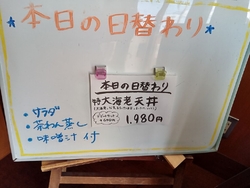 *本日の日替わり*
本日の日替わり
特大海老天丼
1,980円
・サラダ
・茶わん蒸し
・味噌汁 付